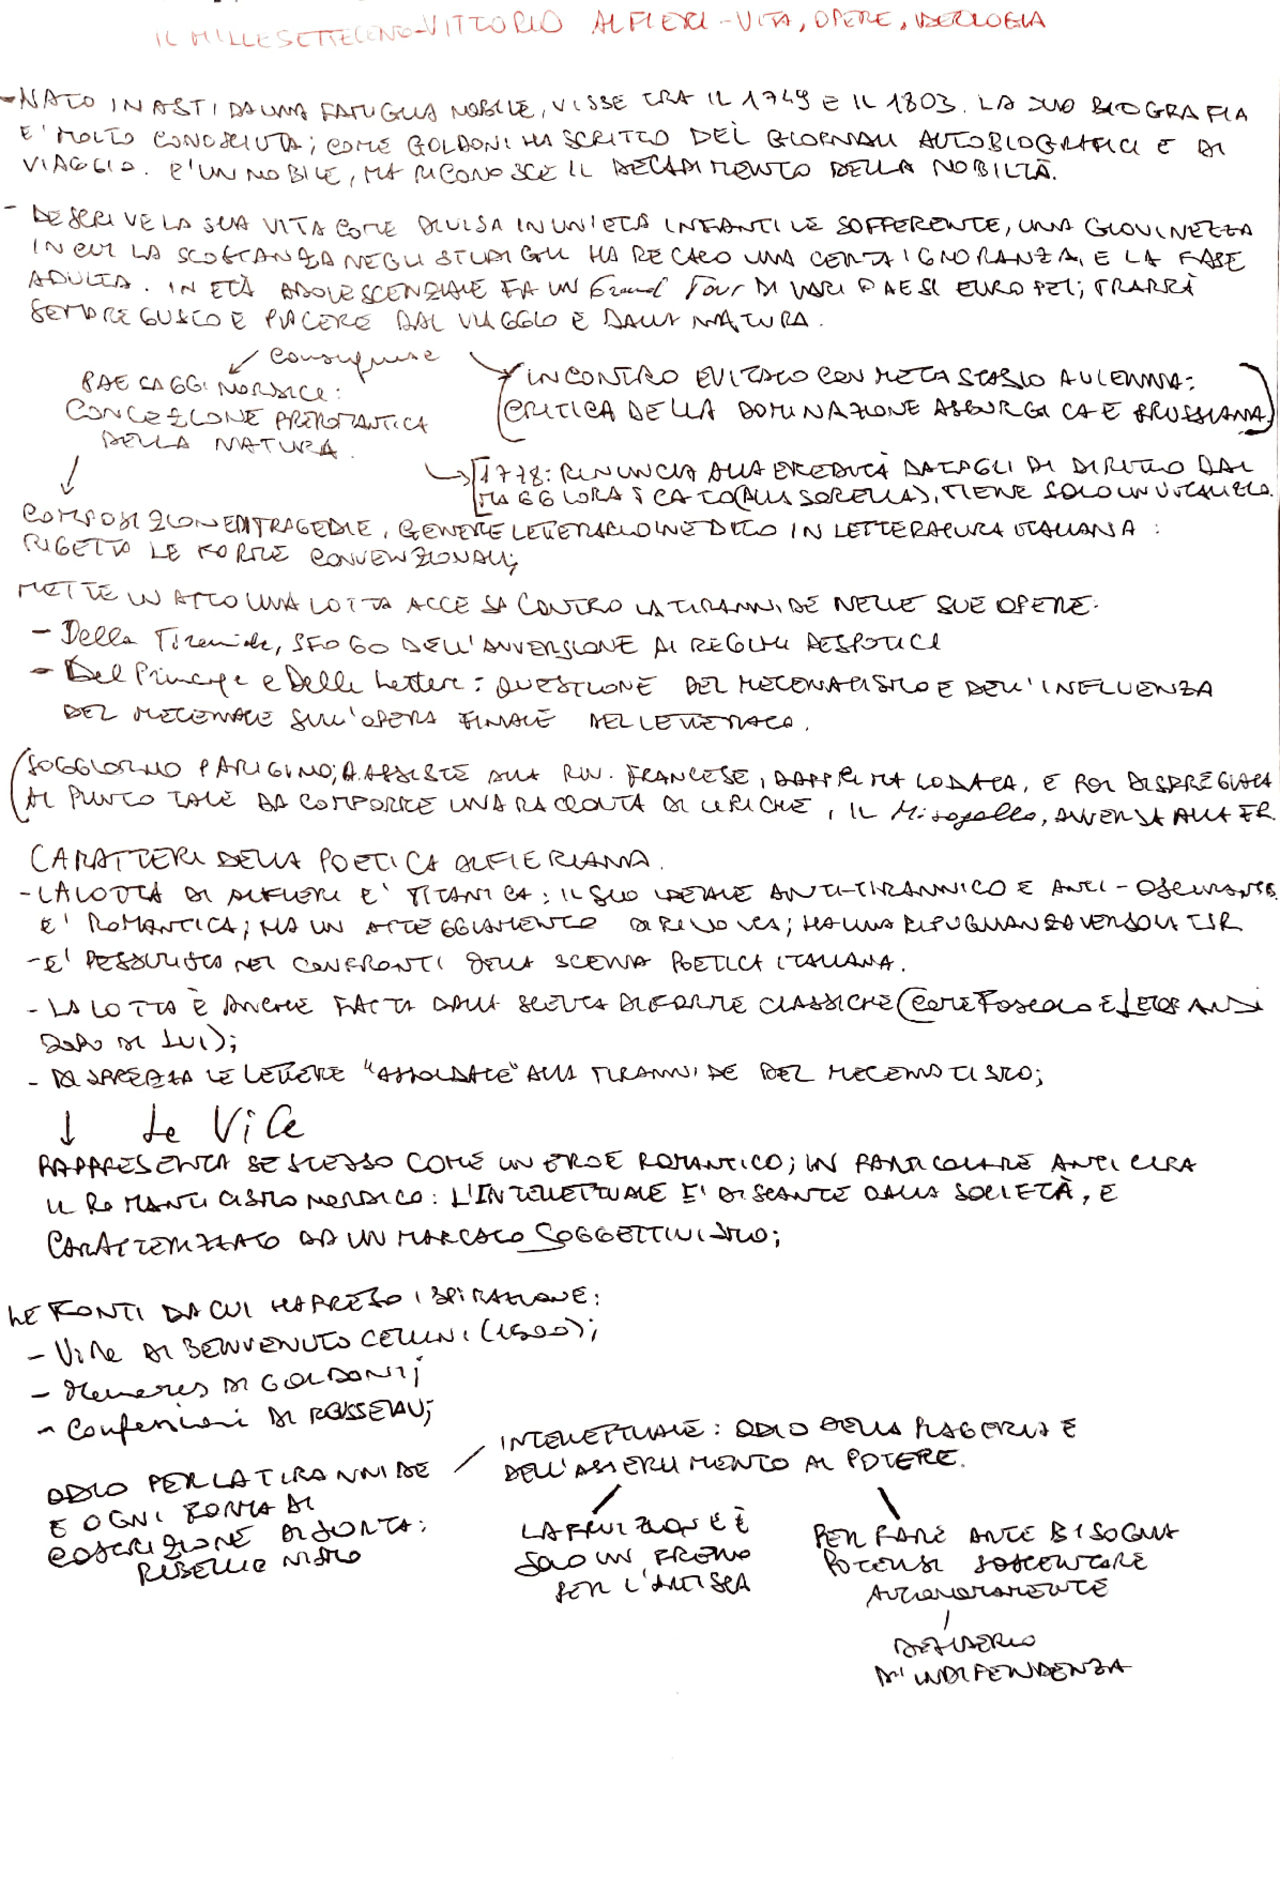 IL MILLESETTECENTO - VITTORIO ALFIERI - VITA, OPERE, IDEOLOGIA
- NATO IN ASTI DA UNA FAMIGLIA NOBILE, VISSE TRA IL 1749 E IL 1803. LA SUA BIOGRAFIA
E' MOLTO CONOSCIUTA; COME GOLDONI HA SCRITTO DEI GIORNALI AUTOBIOGRAFICI E DI
VIAGGIO. E' UN NOBILE, MA RICONOSCE IL DECADIMENTO DELLA NOBILTÀ.
- DESCRIVE LA SUA VITA COME DIVISA IN UN'ETÀ INFANTILE SOFFERENTE, UNA GIOVINEZZA
IN CUI LA SCOSTANZA NEGLI STUDI GLI HA RECATO UNA CERTA IGNORANZA, E LA FASE
ADULTA. IN ETÀ ADOLESCENZIALE FA UN Grand Tour DI VARI PAESI EUROPEI; TRARRÀ
SEMPRE GUSTO E PIACERE DAL VIAGGIO E DALLA NATURA.
Conseguenze
PAESAGGI NORDICI:
CONCEZIONE PREROMANTICA
DELLA NATURA.
INCONTRO EVITATO CON METASTASIO A VIENNA:
CRITICA DELLA DOMINAZIONE ASBURGICA E PRUSSIANA
1778: RINUNCIA ALLA EREDITÀ DATAGLI DI DIRITTO DAL
MAGGIORASCATO (ALLA SORELLA), TIENE SOLO UN VITALIZIO.
COMPOSIZIONE DI TRAGEDIE, GENERE LETTERARIO INEDITO IN LETTERATURA ITALIANA:
RIGETTO LE FORME CONVENZIONALI;
METTE IN ATTO UNA LOTTA ACCESA CONTRO LA TIRANNIDE NELLE SUE OPERE:
- Della Tirannide, SFOGO DELL'AVVERSIONE AI REGIMI DESPOTICI
- Del Principe e Delle Lettere: QUESTIONE DEL MECENATISMO E DELL'INFLUENZA
DEL MECENATE SULL'OPERA FINALE DEL LETTERATO.
(SOGGIORNO PARIGINO; A. ASSISTE ALLA RIV. FRANCESE, DAPPRIMA LODATA, E POI DISPREGIATA
AL PUNTO TALE DA COMPORRE UNA RACCOLTA DI LIRICHE, IL Misogallo, AVVERSA ALLA FR.
CARATTERI DELLA POETICA ALFIERIANA.
- LA LOTTA DI ALFIERI E' TITANICA: IL SUO IDEALE ANTI-TIRANNICO E ANTI-OSCURANTIS.
E' ROMANTICA; HA UN ATTEGGIAMENTO DI RIVOLTA; HA UNA RIPUGNANZA VERSO LA TIR
- E' PESSIMISTA NEI CONFRONTI DELLA SCENA POETICA ITALIANA.
- LA LOTTA È ANCHE FATTA DALLA SCELTA DI FORME CLASSICHE (COME FOSCOLO E LEOPARDI
DOPO DI LUI);
- DISPREZZA LE LETTERE "ASSOLDATE" ALLA TIRANNIDE DEL MECENATISMO;
Le Vite
RAPPRESENTA SE STESSO COME UN EROE ROMANTICO; IN PARTICOLARE ANTICIPA
IL ROMANTICISMO NORDICO: L'INTELLETTUALE E' DISTANTE DALLA SOCIETÀ, E
CARATTERIZZATO DA UN MARCATO SOGGETTIVISMO;
LE FONTI DA CUI HA PRESO ISPIRAZIONE:
- Vita DI BENVENUTO CELLINI (1500);
- Memories DI GOLDONI;
- Confessioni DI ROSSEAU;
ODIO PER LA TIRANNIDE
E OGNI FORMA DI
COSTRIZIONE DI SORTA:
RIBELLIONISMO
INTELLETTUALE: ODIO DELLA PIAGGERIA E
DELL'ASSERVIMENTO AL POTERE.
LA FRUIZIONE È
SOLO UN FRENO
PER L'ARTISTA
PER FARE ARTE BISOGNA
POTERSI SOSTENTARE
AUTONOMAMENTE
DESIDERIO
D'INDIPENDENZA